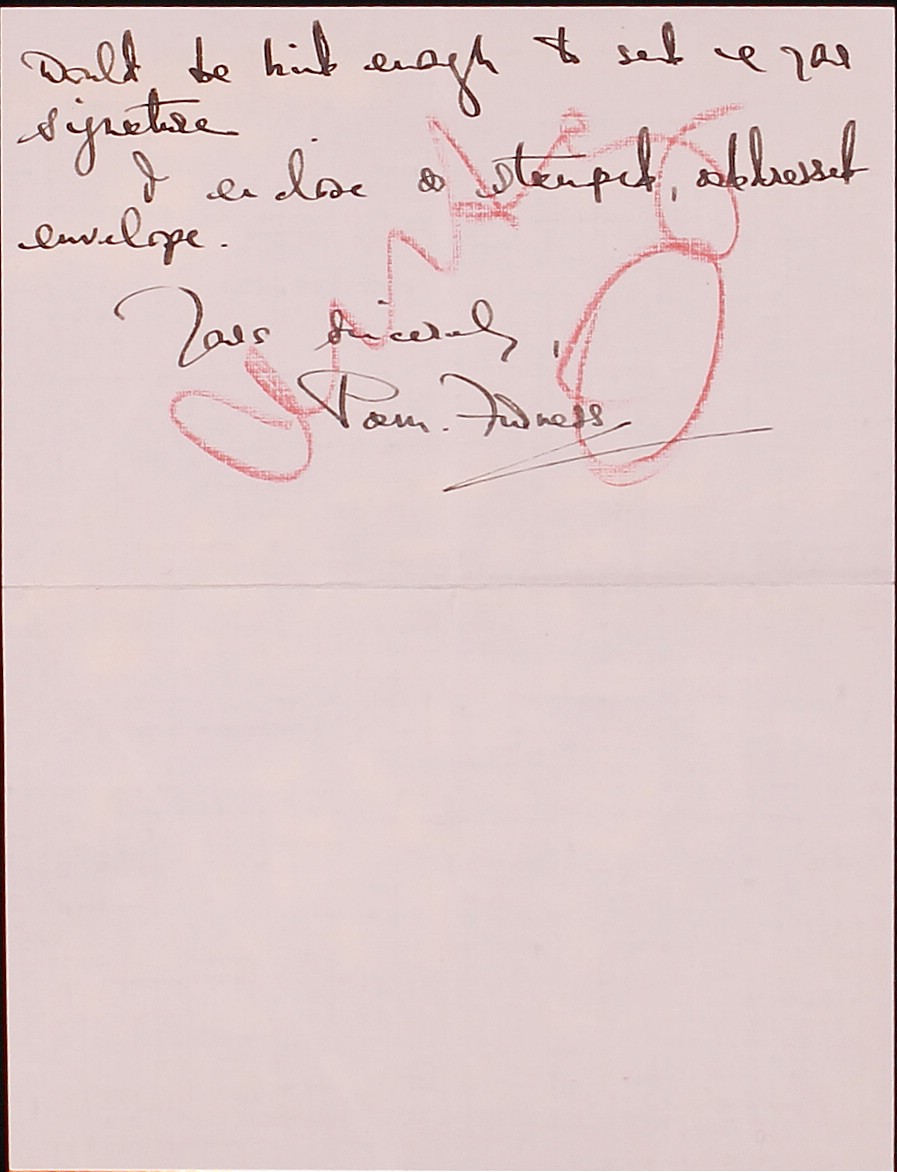 would be kind enough to send me your
signature
I enclose a stamped, addressed
envelope.
Yours sincerely,
Pam. Furness